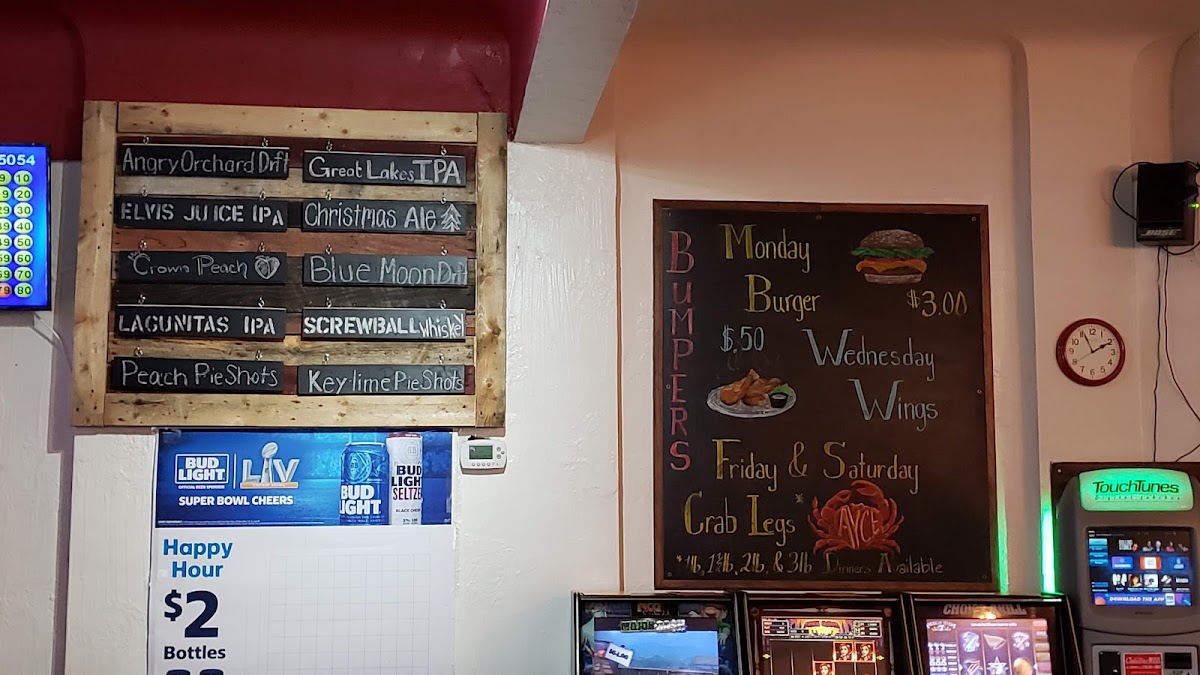 5054
9 10
9 20
29 30
39 40
49 50
59 60
69 70
79 80
Angry Orchard Drft
Great Lakes IPA
ELVIS JUICE IPA
Christmas Ale
Crown Peach
Blue Moon Drft
LAGUNITAS IPA
SCREWBALL whiskey
Peach Pie Shots
Key lime Pie Shots
BUD LIGHT
LV
SUPER BOWL CHEERS
BUD
LIGHT
BUD
LIGHT
SELTZER
Happy
Hour
$2
Bottles
BUMPERS
Monday
Burger
$3.00
$.50
Wednesday
Wings
Friday & Saturday
Crab Legs *
AYCE
*1lb, 1½lb, 2lb, & 3lb Dinners Available
BOSE
TouchTunes
DOWNLOAD THE APP